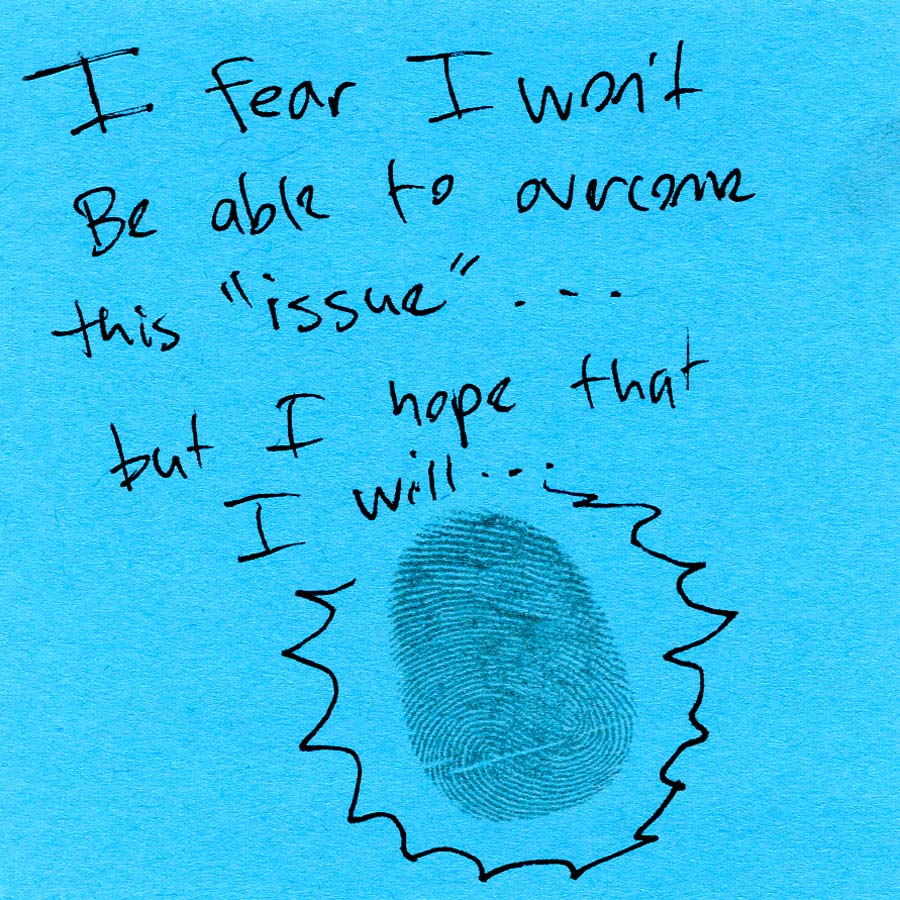 I fear I won't
Be able to overcome
this "issue" . . .
but I hope that
I will . . .